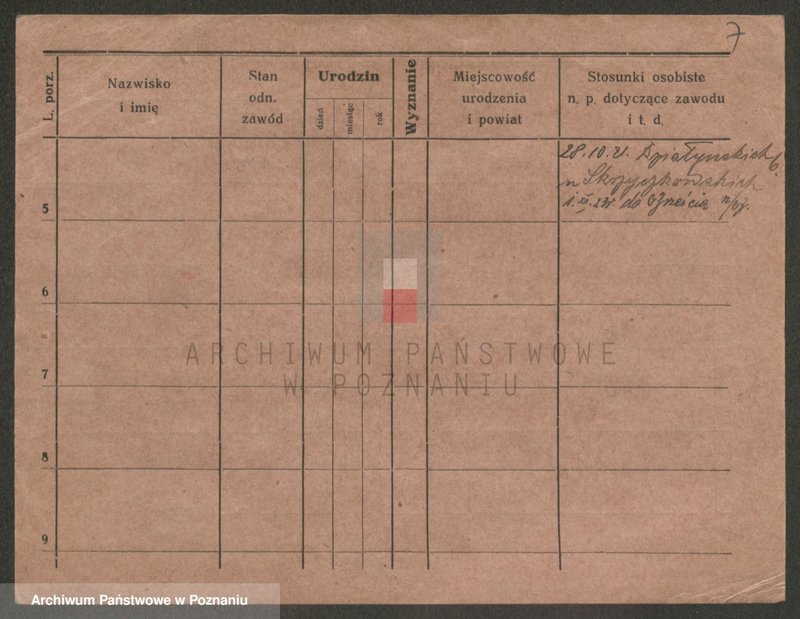 7
L. porz.
Nazwisko
i imię
Stan
odn.
zawód
Urodzin
dzień
miesiąc
rok
Wyznanie
Miejscowość
urodzenia
i powiat
Stosunki osobiste
n. p. dotyczące zawodu
i t. d.
28.10.21. Działyńskich 6.
u Skrzyczkowskich
do
5
6
7
8
9
ARCHIWUM PAŃSTWOWE
W POZNANIU
Archiwum Państwowe w Poznaniu